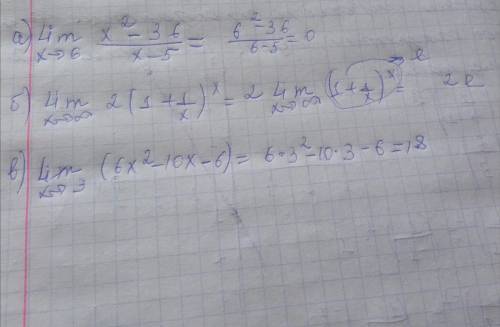 а) lim x→6 (x² - 36)/(x - 5) = (6² - 36)/(6 - 5) = 0
б) lim x→∞ 2(1 + 1/x)^x = 2 lim x→∞ (1 + 1/x)^x → e = 2e
в) lim x→3 (6x² - 10x - 6) = 6·3² - 10·3 - 6 = 18